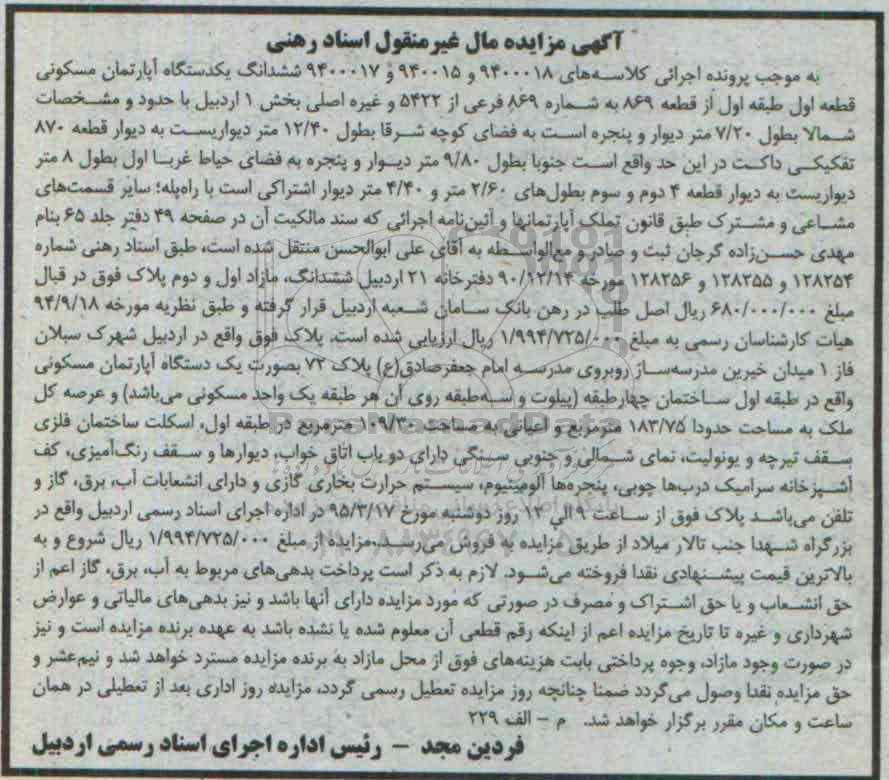 آگهی مزایده مال غیرمنقول اسناد رهنی
به موجب پرونده اجرائی کلاسه‌های ۹۴۰۰۰۱۸ و ۹۴۰۰۱۵ و ۹۴۰۰۰۱۷ ششدانگ یکدستگاه آپارتمان مسکونی
قطعه اول طبقه اول از قطعه ۸۶۹ به شماره ۸۶۹ فرعی از ۵۴۲۲ و غیره اصلی بخش ۱ اردبیل با حدود و مشخصات
شمالا بطول ۷/۲۰ متر دیوار و پنجره است به فضای کوچه شرقا بطول ۱۲/۴۰ متر دیواریست به دیوار قطعه ۸۷۰
تفکیکی داکت در این حد واقع است جنوبا بطول ۹/۸۰ متر دیوار و پنجره به فضای حیاط غربا اول بطول ۸ متر
دیواریست به دیوار قطعه ۴ دوم و سوم بطول‌های ۲/۶۰ متر و ۴/۴۰ متر دیوار اشتراکی است با راه‌پله؛ سایر قسمت‌های
مشاعی و مشترک طبق قانون تملک آپارتمانها و آئین‌نامه اجرائی که سند مالکیت آن در صفحه ۴۹ دفتر جلد ۶۵ بنام
مهدی حسن‌زاده گرجان ثبت و صادر و مع‌الواسطه به آقای علی ابوالحسن منتقل شده است، طبق اسناد رهنی شماره
۱۲۸۲۵۴ و ۱۲۸۲۵۵ و ۱۲۸۲۵۶ مورخه ۹۰/۱۲/۱۴ دفترخانه ۲۱ اردبیل ششدانگ، مازاد اول و دوم پلاک فوق در قبال
مبلغ ۶۸۰/۰۰۰/۰۰۰ ریال اصل طلب در رهن بانک سامان شعبه اردبیل قرار گرفته و طبق نظریه مورخه ۹۴/۹/۱۸
هیات کارشناسان رسمی به مبلغ ۱/۹۹۴/۷۲۵/۰۰۰ ریال ارزیابی شده است. پلاک فوق واقع در اردبیل شهرک سبلان
فاز ۱ میدان خیرین مدرسه‌ساز روبروی مدرسه امام جعفرصادق(ع) پلاک ۷۳ بصورت یک دستگاه آپارتمان مسکونی
واقع در طبقه اول ساختمان چهارطبقه (پیلوت و سه‌طبقه روی آن هر طبقه یک واحد مسکونی می‌باشد) و عرصه کل
ملک به مساحت حدودا ۱۸۳/۷۵ مترمربع و اعیانی به مساحت ۱۰۹/۳۰ مترمربع در طبقه اول، اسکلت ساختمان فلزی
سقف تیرچه و یونولیت، نمای شمالی و جنوبی سینگی دارای دو باب اتاق خواب، دیوارها و سقف رنگ‌آمیزی، کف
آشپزخانه سرامیک درب‌ها چوبی، پنجره‌ها آلومینیوم، سیستم حرارت بخاری گازی و دارای انشعابات آب، برق، گاز و
تلفن می‌باشد پلاک فوق از ساعت ۹ الی ۱۲ روز دوشنبه مورخ ۹۵/۳/۱۷ در اداره اجرای اسناد رسمی اردبیل واقع در
بزرگراه شهدا جنب تالار میلاد از طریق مزایده به فروش می‌رسد.مزایده از مبلغ ۱/۹۹۴/۷۲۵/۰۰۰ ریال شروع و به
بالاترین قیمت پیشنهادی نقدا فروخته می‌شود. لازم به ذکر است پرداخت بدهی‌های مربوط به آب، برق، گاز اعم از
حق انشعاب و یا حق اشتراک و مصرف در صورتی که مورد مزایده دارای آنها باشد و نیز بدهی‌های مالیاتی و عوارض
شهرداری و غیره تا تاریخ مزایده اعم از اینکه رقم قطعی آن معلوم شده یا نشده باشد به عهده برنده مزایده است و نیز
در صورت وجود مازاد، وجوه پرداختی بابت هزینه‌های فوق از محل مازاد به برنده مزایده مسترد خواهد شد و نیم‌عشر و
حق مزایده نقدا وصول می‌گردد ضمنا چنانچه روز مزایده تعطیل رسمی گردد، مزایده روز اداری بعد از تعطیلی در همان
ساعت و مکان مقرر برگزار خواهد شد. م – الف ۲۲۹
فردین مجد – رئیس اداره اجرای اسناد رسمی اردبیل